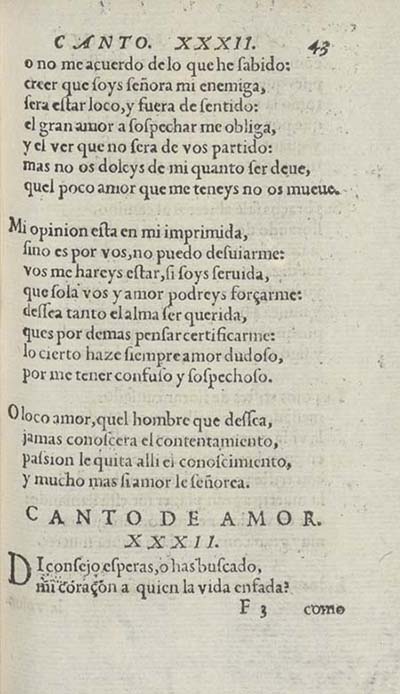 CANTO. XXXII. 43
o no me acuerdo de lo que he sabido:
creer que soys señora mi enemiga,
sera estar loco, y fuera de sentido:
el gran amor a sospechar me obliga,
y el ver que no sera de vos partido:
mas no os doleys de mi quanto ser deue,
quel poco amor que me teneys no os mueue.
Mi opinion esta en mi imprimida,
sino es por vos, no puedo desuiarme:
vos me hareys estar, si soys seruida,
que sola vos y amor podreys forçarme:
dessea tanto el alma ser querida,
ques por demas pensar certificarme:
lo cierto haze siempre amor dudoso,
por me tener confuso y sospechoso.
O loco amor, quel hombre que dessea,
jamas conoscera el contentamiento,
passion le quita alli el conoscimiento,
y mucho mas si amor le señorea.
CANTO DE AMOR.
XXXII.
DI consejo esperas, o has buscado,
mi coraçon a quien la vida enfada?
F 3 como